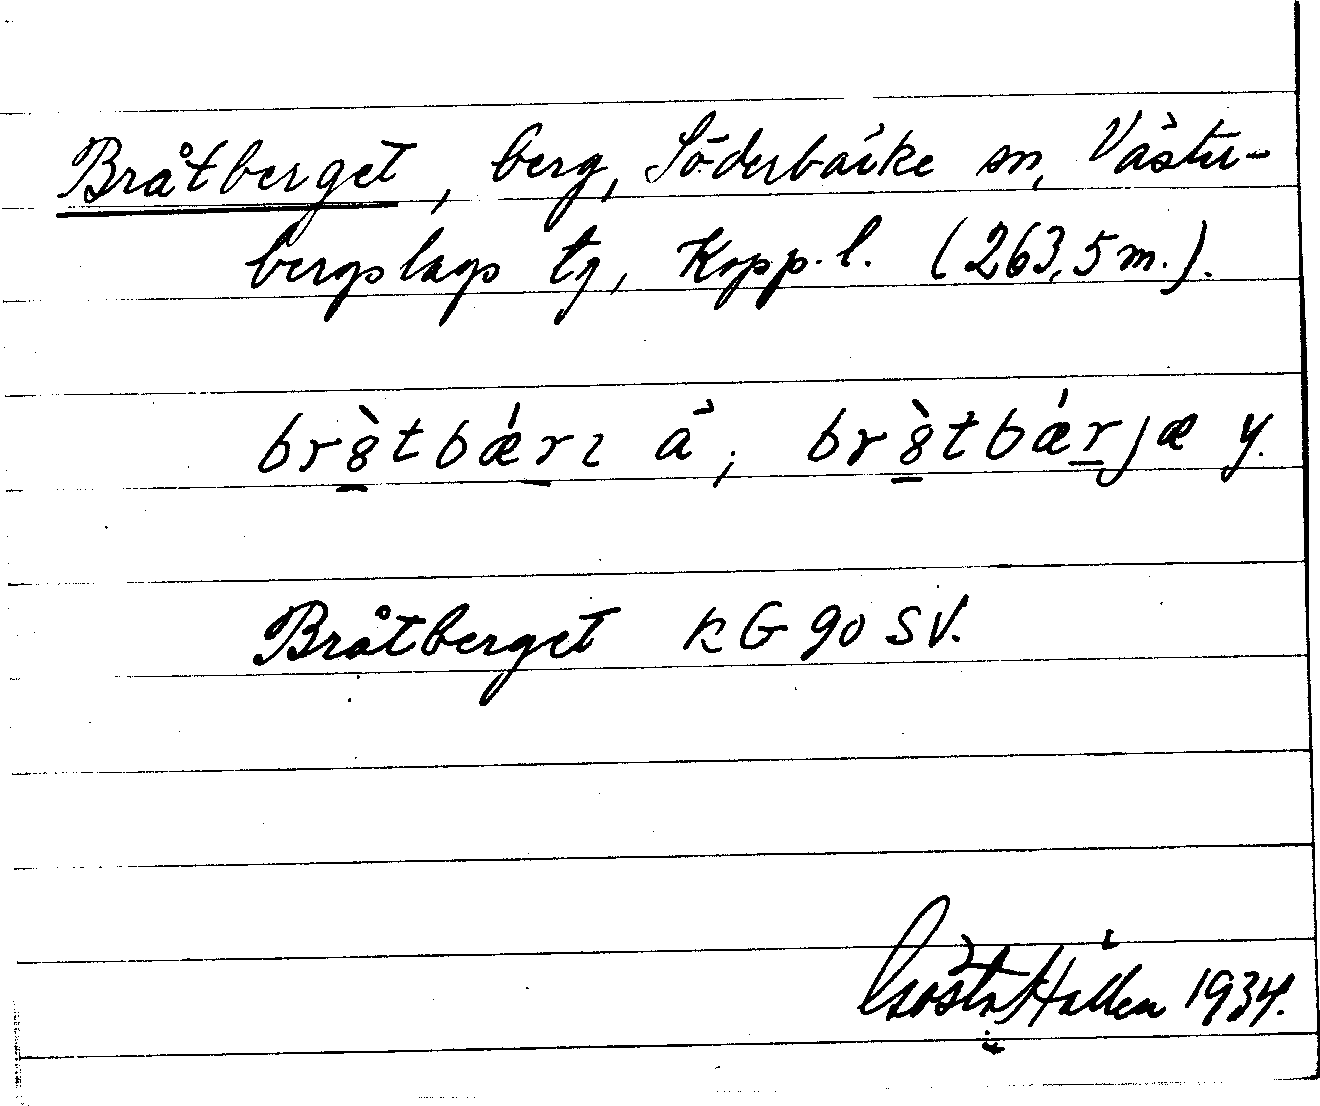 Bråtberget, berg, Söderbärke sn, Väster-
bergslags tg, Kopp. l. (263,5 m.).
br8̀tbǽrɩ ä, br8̀tbǽrjæ y.
Bråtberget kG 90 SV.
Gösta Hallen 1934.